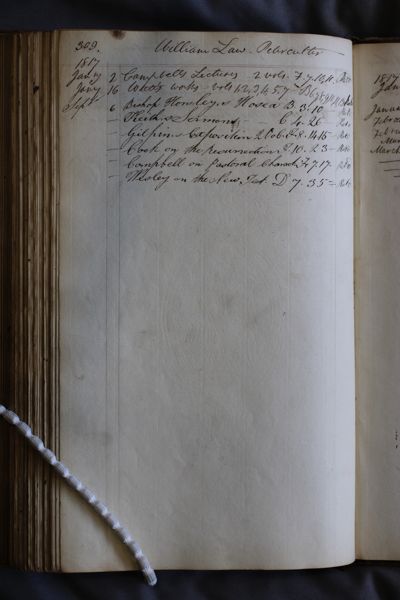 309. William Law Peterculter
1817
Jany 2 Campbells Lectures 2 vols F.7.10,11. Retd
Jany 16 works vols 1 2, 3 4 5 7
Sept 6 Bishop Horsley's Hosea B.3.10 Retd
Sermons C 4. 26 Retd
— Gilpins Exposition 2 Vols 14 15 Retd
— Cook on the resurrection F.10. 23 Retd
— Campbell on Pastoral Charact 7.17. Retd
— Wesley on the New Test D 7. 35 Retd
1817
Janua
Febru
Febru
Mar
March